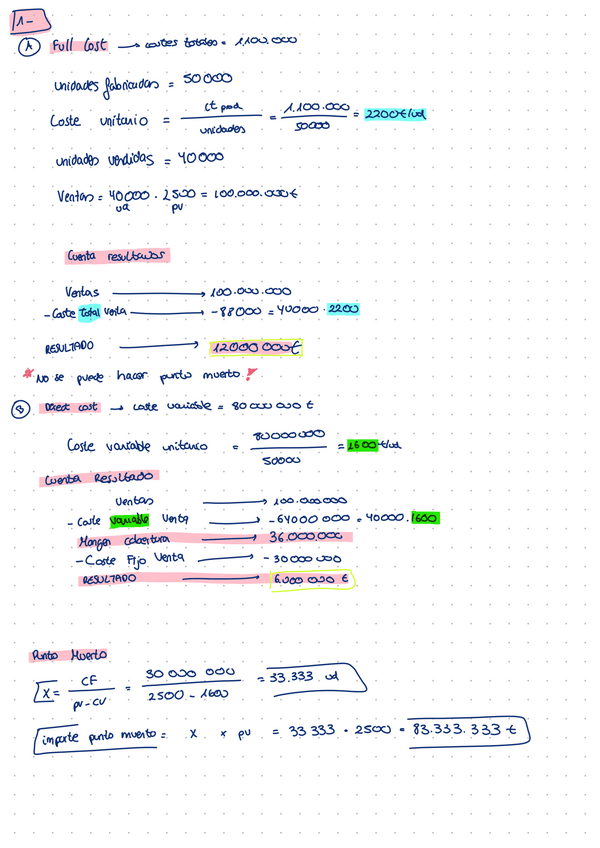 1-
A Full Cost → costes totales = 1.100.000
unidades fabricadas = 50000
Coste unitario = ct prod / unidades = 1.100.000 / 50000 = 2200€/ud
unidades vendidas = 40000
Ventas = 40000 · 2500 = 100.000.000€
ud pv
Cuenta resultados
Ventas → 100.000.000
- Coste Total Venta → -88000 = 40000 · 2200
RESULTADO → 12000000€
* No se puede hacer punto muerto !
B Direct cost → coste variable = 80000000 €
Coste variable unitario = 80000000 / 50000 = 1600 €/ud
Cuenta Resultado
Ventas → 100.000.000
- Coste Variable Venta → -64000000 = 40000 · 1600
Margen cobertura → 36.000.000
- Coste Fijo Venta → -30000000
RESULTADO → 6.000000 €
Punto Muerto
X = CF / pv - cv = 30000000 / 2500 - 1600 = 33.333 ud
importe punto muerto = X * pv = 33333 · 2500 = 83.333.333 €